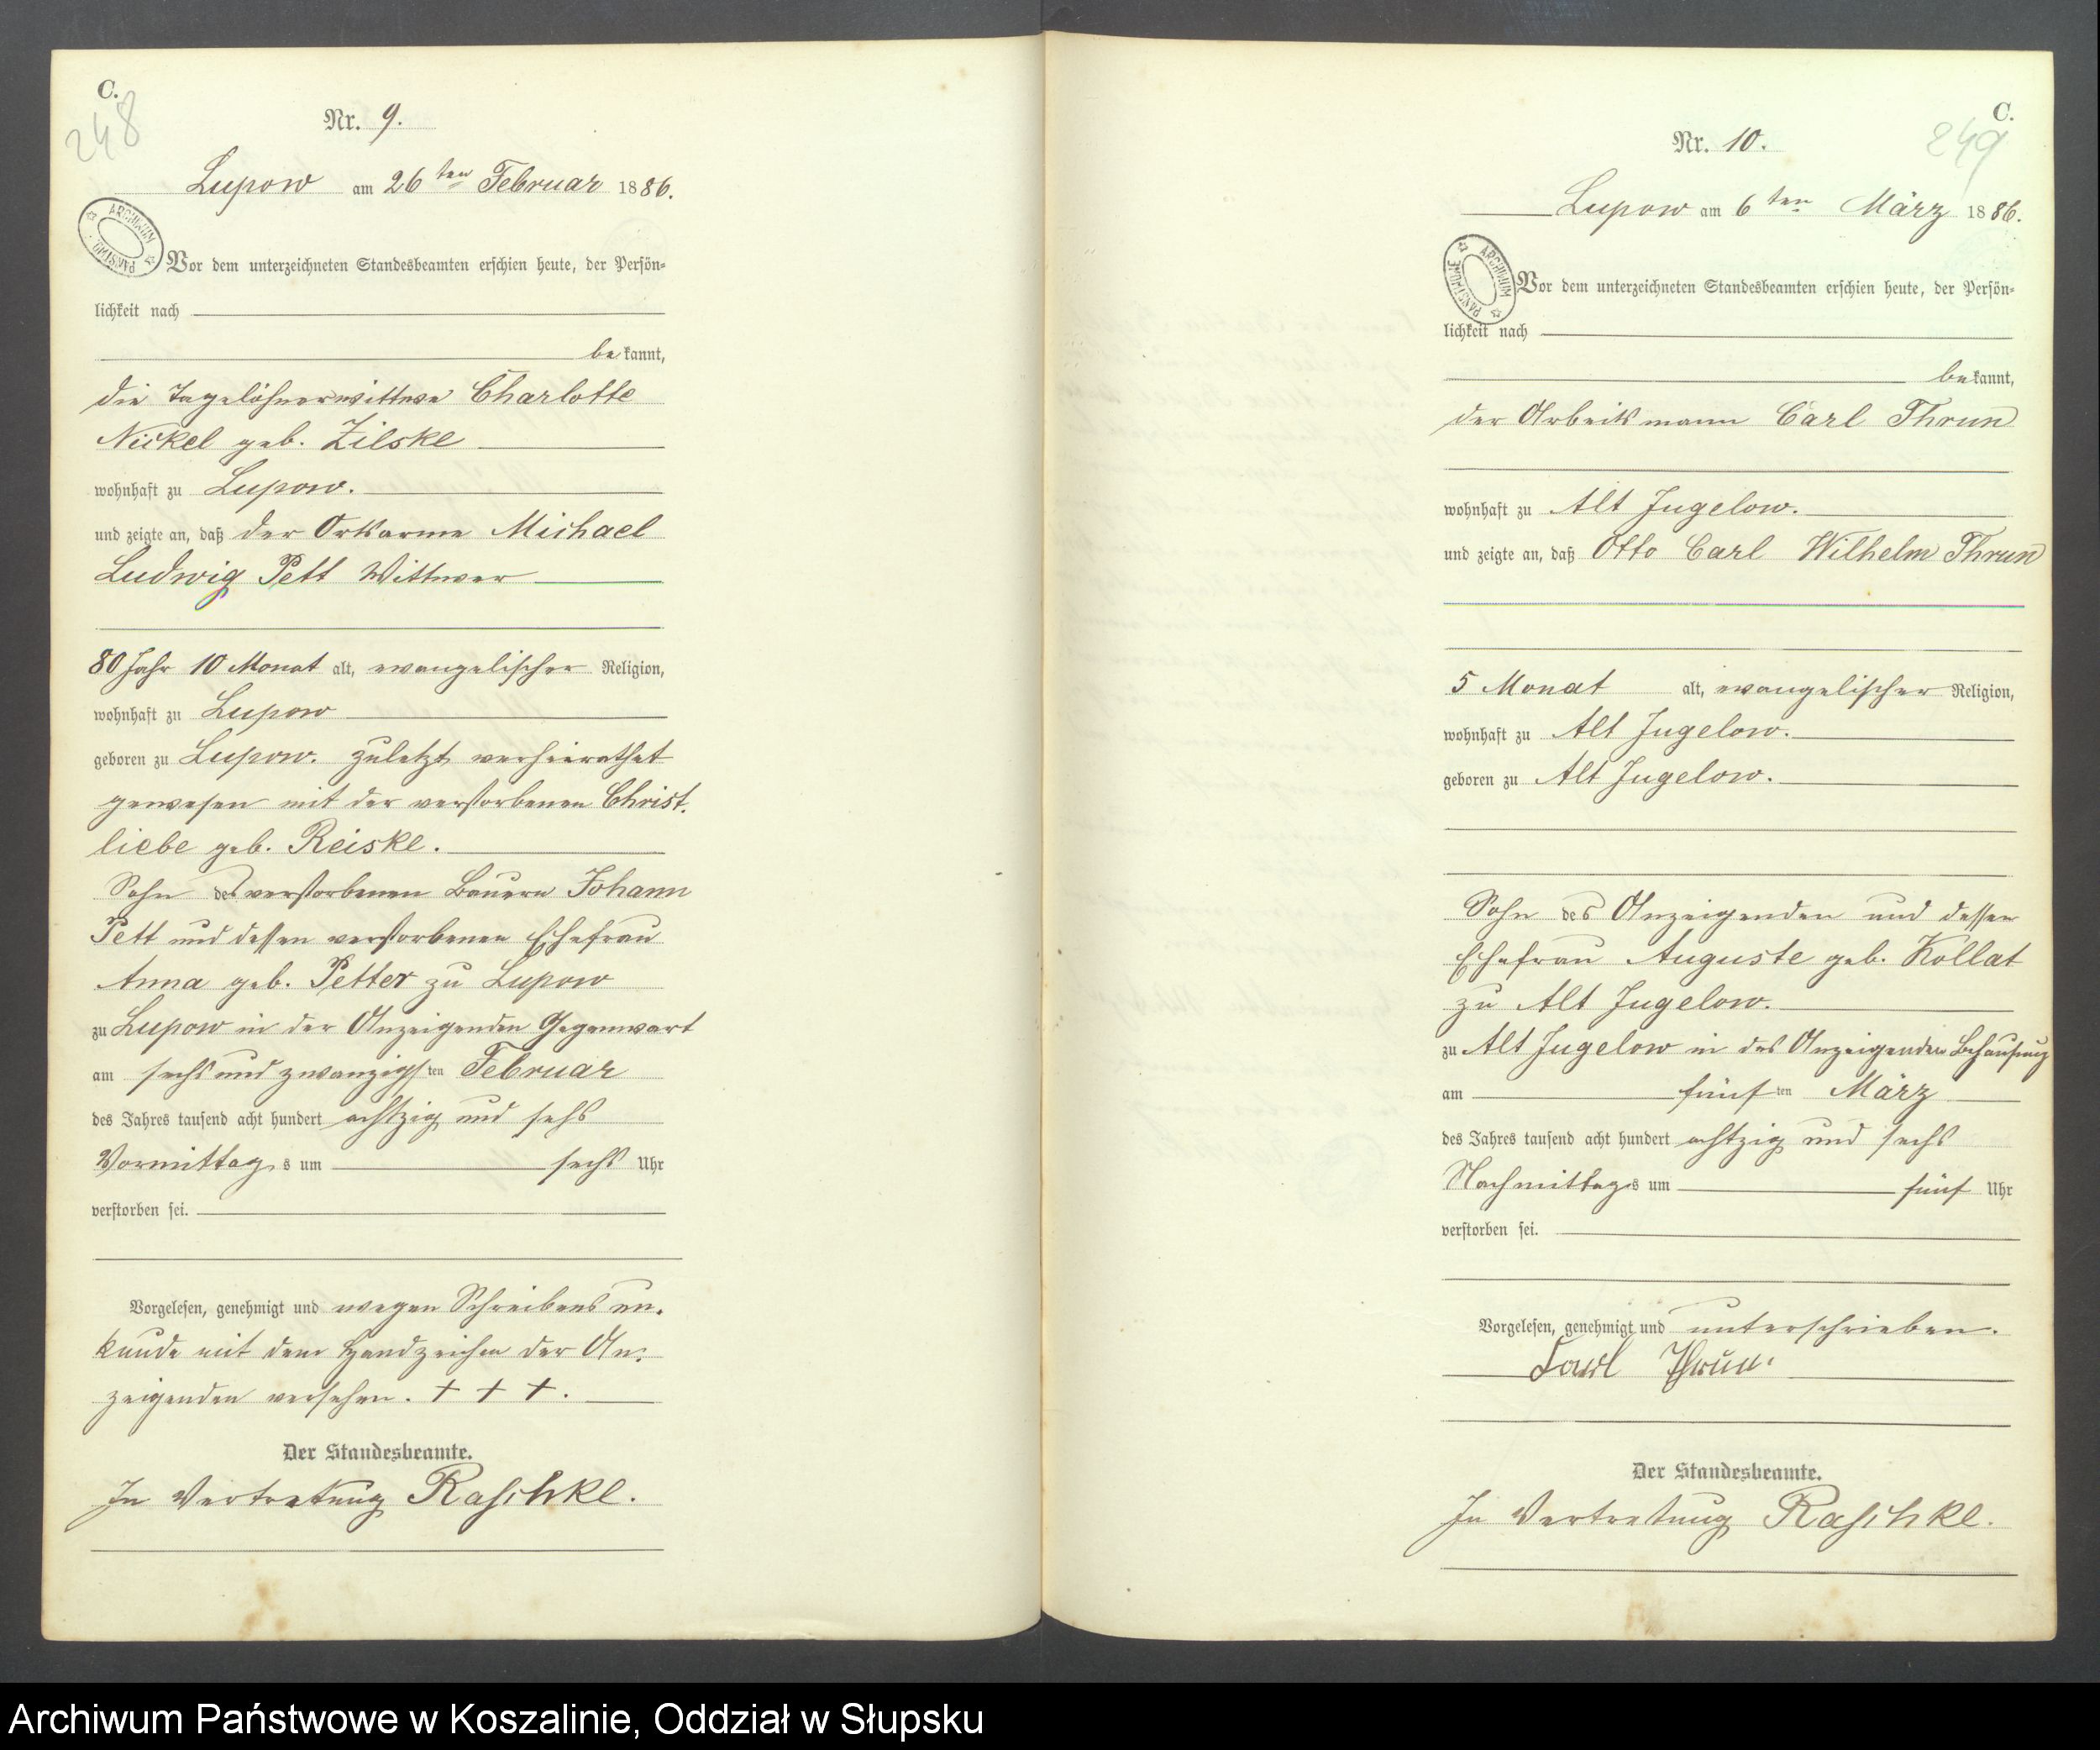 C.
248
Nr. 9.
Lupow am 26ten Februar 1886.
ARCHIWUM PAŃSTWOWE
Vor dem unterzeichneten Standesbeamten erschien heute, der Persön-
lichkeit nach
bekannt,
die Tagelöhnerwittwe Charlotte
Nickel geb. Zilske
wohnhaft zu Lupow.
und zeigte an, daß der Ortsarme Michael
Ludwig Pett Wittwer
80 Jahr 10 Monat alt, evangelischer Religion,
wohnhaft zu Lupow
geboren zu Lupow. zuletzt verheirathet
gewesen mit der verstorbenen Christ.
liebe geb. Reiske.
Sohn des verstorbenen Bauern Johann
Pett und dessen verstorbenen Ehefrau
Anna geb. Petter zu Lupow
zu Lupow in der Anzeigenden Gegenwart
am sechs und zwanzigsten Februar
des Jahres tausend acht hundert achtzig und sechs
Vormittags um sechs Uhr
verstorben sei.
Vorgelesen, genehmigt und wegen Schreibens un-
kunde mit dem Handzeichen der An-
zeigenden versehen. + + +.
Der Standesbeamte.
In Vertretung Raschke.
C.
249
Nr. 10.
Lupow am 6ten März 1886.
ARCHIWUM PAŃSTWOWE
Vor dem unterzeichneten Standesbeamten erschien heute, der Persön-
lichkeit nach
bekannt,
der Arbeitsmann Carl Thrun
wohnhaft zu Alt Jugelow.
und zeigte an, daß Otto Carl Wilhelm Thrun
5 Monat alt, evangelischer Religion,
wohnhaft zu Alt Jugelow.
geboren zu Alt Jugelow.
Sohn des Anzeigenden und dessen
Ehefrau Auguste geb. Kollat
zu Alt Jugelow.
zu Alt Jugelow in des Anzeigenden Behausung
am fünften März
des Jahres tausend acht hundert achtzig und sechs
Nachmittags um fünf Uhr
verstorben sei.
Vorgelesen, genehmigt und unterschrieben.
Carl Thrun.
Der Standesbeamte.
In Vertretung Raschke.
Archiwum Państwowe w Koszalinie, Oddział w Słupsku